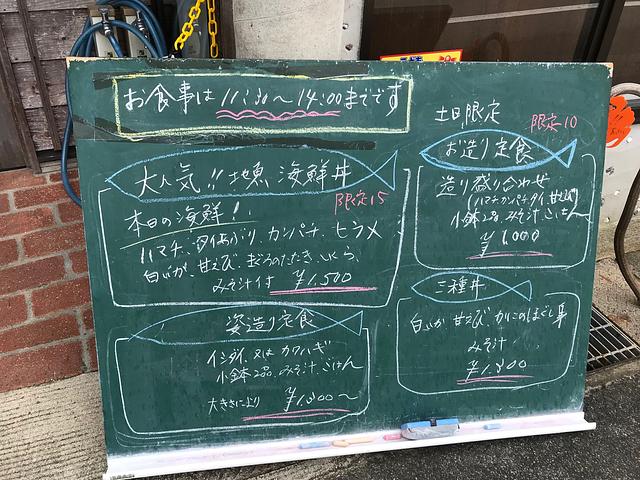 お食事は 11:30～14:00までです
大人気!! 地魚 海鮮丼
限定15
本日の海鮮!
ハマチ、タイあぶり、カンパチ、ヒラメ
白いか、甘えび、まぐろのたたき、いくら、
みそ汁付 ¥1,500
姿造り定食
イシダイ 又は カワハギ
小鉢2品、みそ汁、ごはん
大きさにより ¥1,800～
土日限定
限定10
お造り定食
造り盛り合わせ
(ハマチ カンパチ タイ 甘えび)
小鉢2品、みそ汁、ごはん
¥1,000
三種丼
白いか 甘えび、かにのほぐし身
みそ汁
¥1,300